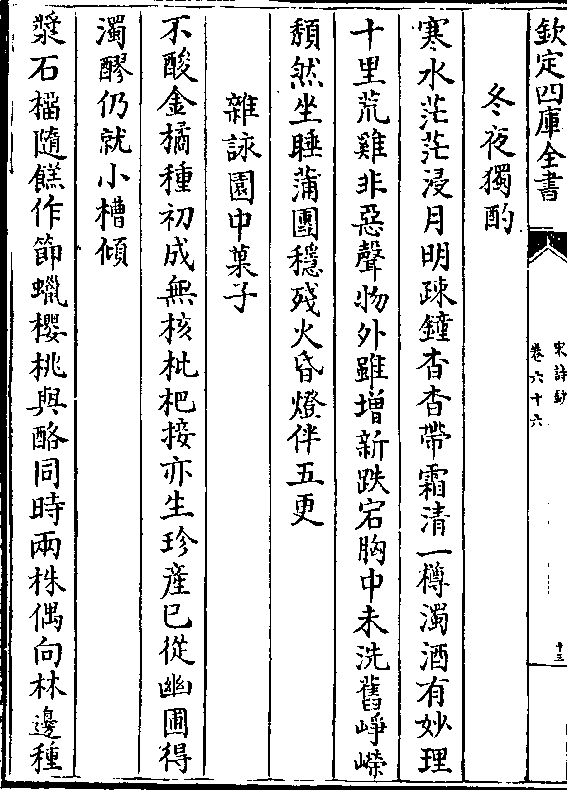 欽定四庫全書
宋詩鈔
卷六十六
十三
冬夜獨酌
寒水茫茫浸月明疎鐘杳杳帶霜清一樽濁酒有妙理
十里荒雞非惡聲物外雖增新跌宕胸中未洗舊崢嶸
頽然坐睡蒲團穩殘火昏燈伴五更
雜詠園中菓子
不酸金橘種初成無核枇杷接亦生珍産已從幽圃得
濁醪仍就小槽傾
漿石橊隨餻作節蠟櫻桃與酪同時兩株偶向林邊種